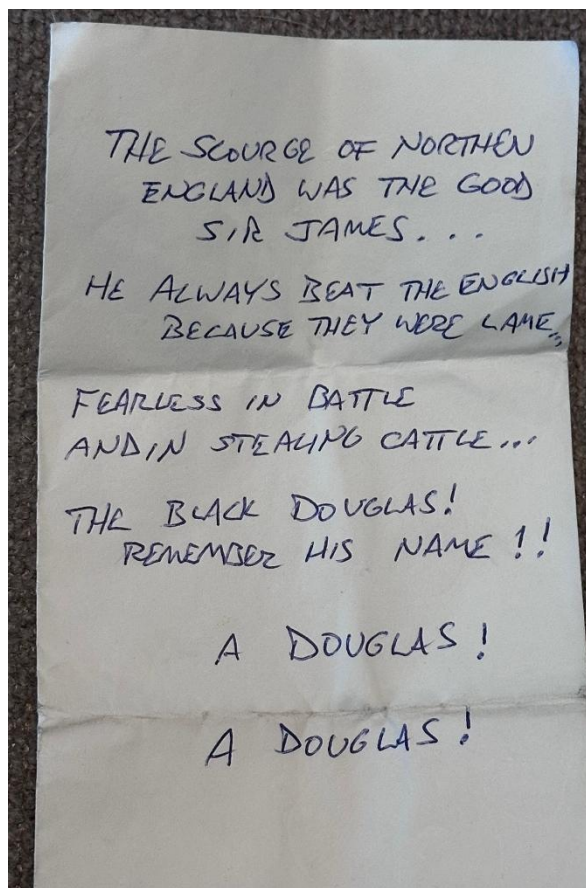 THE SCOURGE OF NORTHEN
ENGLAND WAS THE GOOD
SIR JAMES...
HE ALWAYS BEAT THE ENGLISH
BECAUSE THEY WERE LAME,,,
FEARLESS IN BATTLE
AND IN STEALING CATTLE...
THE BLACK DOUGLAS!
REMEMBER HIS NAME!!
A DOUGLAS!
A DOUGLAS!